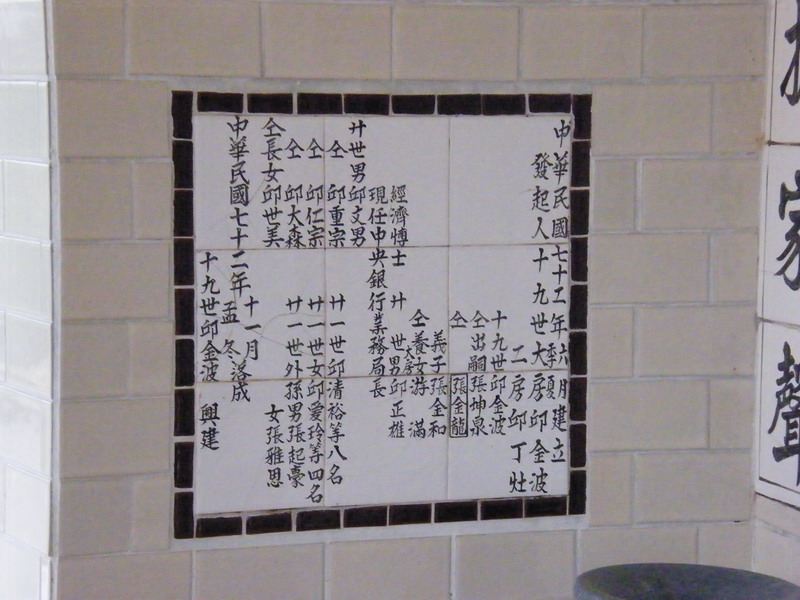 家聲
中華民國七十二年六月季夏建立
發起人 十九世大房邱金波
二房邱丁灶
十九世邱金波
仝出嗣張坤泉
仝 張金龍
義子張金和
仝養女大房游滿
經濟博士 廿世男邱正雄
現任中央銀行業務局長
廿世男邱文男
仝 邱重宗 廿一世邱清裕等八名
仝 邱仁宗 廿一世女邱愛玲等四名
仝 邱大森 廿一世外孫男張起豪
仝長女邱世美 女張雅思
中華民國七十二年十一月孟冬落成
十九世邱金波 興建